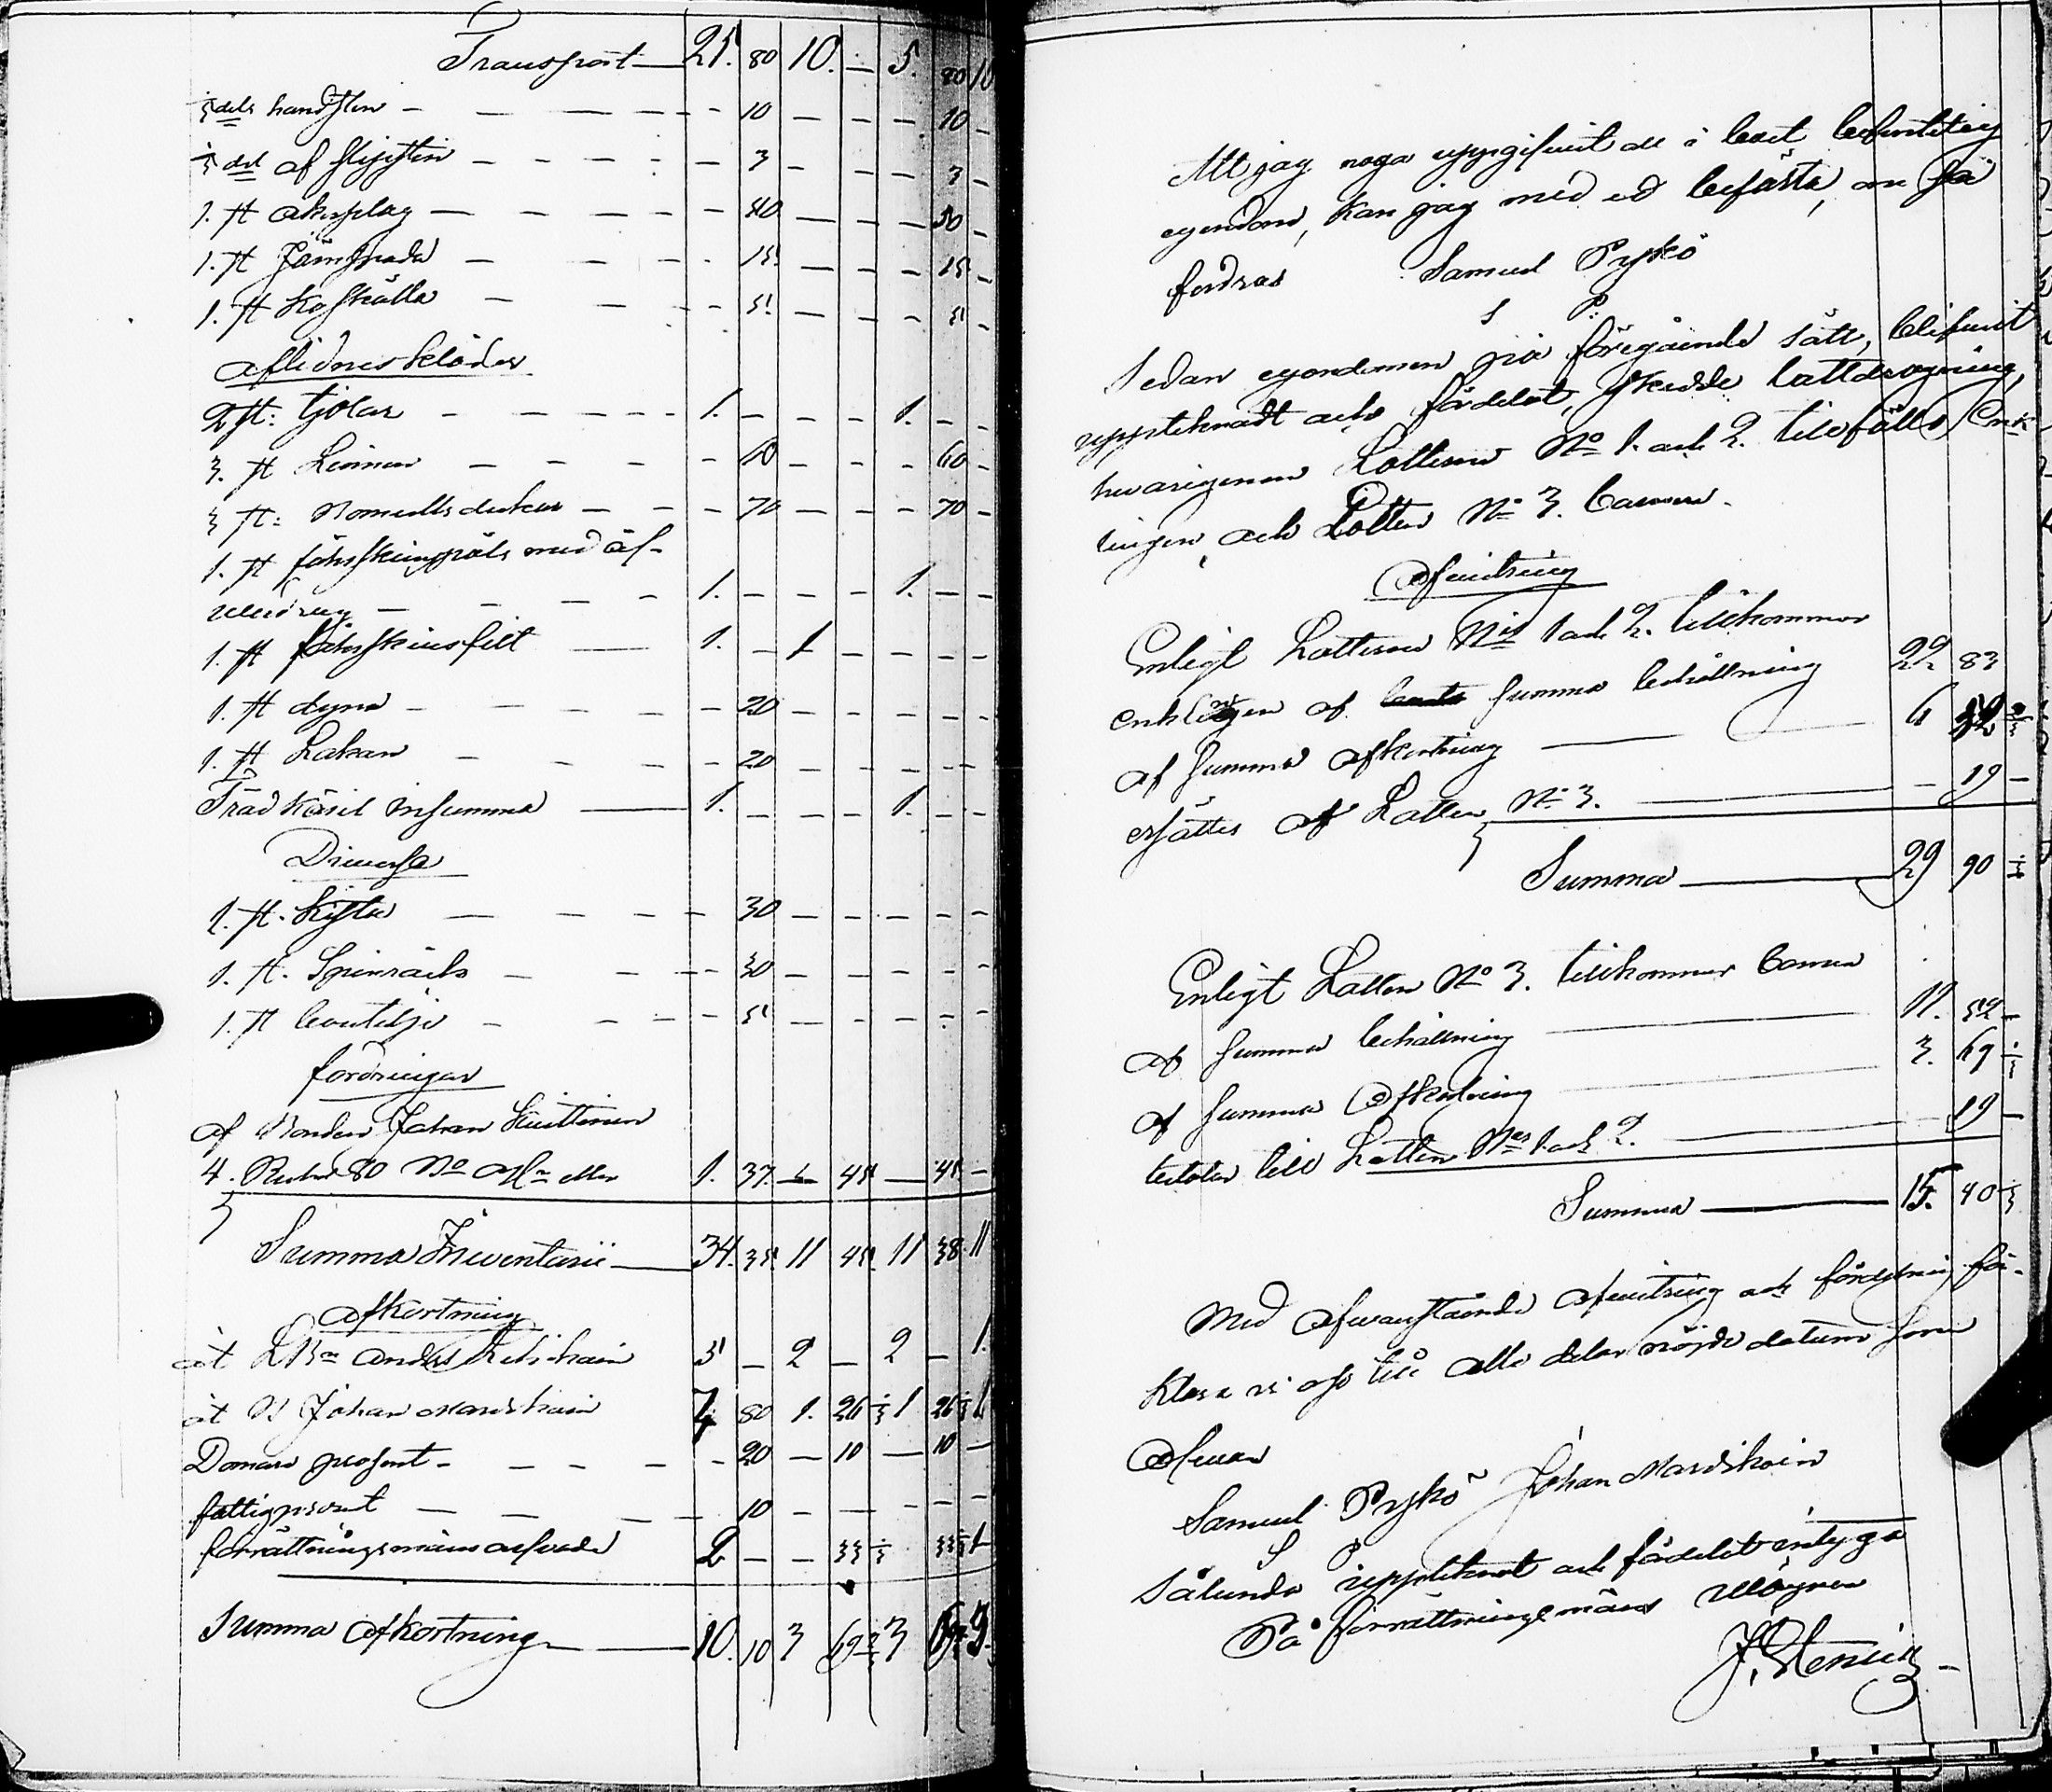 Transport — 25. 80 10. — 5. 80 10
1/3 dels handsten — 10 — — — 10 —
1/3 del af slipsten — 3 — — — 3 —
1. st åkerplog — 50 — — — 50 —
1. st Järnspade — 15. — — — 15 —
1. st Koskälla — 5. — — — 5 —
Aflidnes kläder
2 st: tjolar — 1. — — — 1. — —
3. st Linnen — 60 — — — 60 —
3 st: Bomullsdukar — 70 — — — 70 —
1. st fårskinspäls med öf-
werdrag — 1. — — — 1. — —
1. st fårskinsfäll — 1. — 1 — — — —
1. st dyna — 20 — — — — —
1. st Lakan — 20 — — — — —
Träd Käril insumma — 1. — — — 1. — —
Diwersa
1. st. Kista — 30 — — — — —
1. st. Spinråck — 30 — — — — —
1. st — 5 — — — — —
fordringar
af Bonden Johan Kuittinen
4. Rubel 80 eller 1. 37. — 45. — 45 —
Summa Inventarii — 34. 35. 11 45. 11 38 11
Afkortning
åt Anders 3 — 2 — 2 — 1.
åt B Johan Mardikain 4 80 1. 26 1/3 1 26 1/3 1
Domare prosent — 20 — 10 — 10 —
fattigprosent — 10 — — — — —
förrättningsmäns arfvode 2 — — 33 1/3 33 1/3 1
Summa Afkortning — 10. 10 3 69 2/3 3 69 3.
Att jag noga uppgifwit all i boet befintelig
egendom, kan jag med ed befästa, om så
fordras Samuel Pyykö
S P
Sedan egendomen på föregående sätt, blifwit
upptecknadt och fördelat, skedde lottdragning,
hwarigenom Lotterne No 1. och 2. tillföllo Enk-
lingen, och Lotten No 3. barnen.
Afwitring
Enligt Lotterne No 1 och 2. tillkommer
enklingen af summa behållning 22 83
af summa afkortning — 6
ersättes af Lotten No 3. — — 19 —
Summa — 29 90 1/3
Enligt Lotten No 3. tillkommer barnen
af summa behållning — 11. 52 —
af summa Afkortning — 3. 69 1/3
till Lotten No 1 och 2. — — 19 —
Summa — 15. 40 1/3
Med ofwanstående afwitring och fördelning för-
klara wi oss till alla delar nöjde datum som
Ofwan
Samuel Pyykö Johan Mardikain
S P
Sålunda upptecknat och fördelat intyga
På förrättningsmäns wägnar